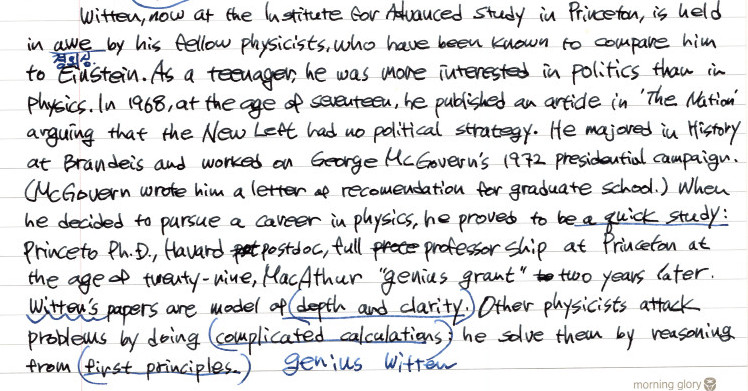 Witten, now at the Institute for Advanced Study in Princeton, is held
in awe by his fellow physicists, who have been known to compare him
경외심.
to Einstein. As a teenager, he was more interested in politics than in
Physics. In 1968, at the age of seventeen, he published an article in 'The Nation'
arguing that the New Left had no political strategy. He majored in History
at Brandeis and worked on George McGovern's 1972 presidential campaign.
(McGovern wrote him a letter of recomendation for graduate school.) When
he decided to pursue a career in physics, he proved to be a quick study:
Princeto Ph.D., Havard postdoc, full professor ship at Princeton at
the age of twenty-nine, MacAthur "genius grant" two years later.
Witten's papers are model of depth and clarity. Other physicists attack
problems by doing complicated calculations; he solve them by reasoning
from first principles. genius Witten
morning glory